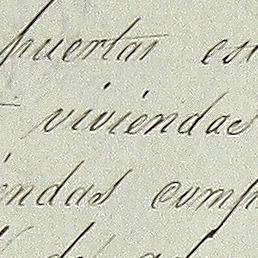 puertas es
viviendas
endas comp